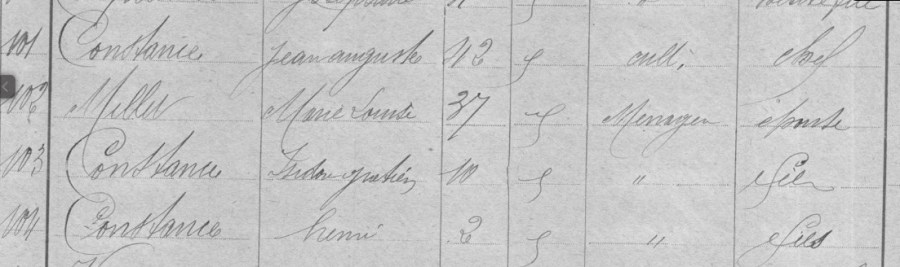 101 Constance Jean auguste 42 f cult. chef
102 Millet Marie Louise 37 f Menagere épouse
103 Constance Isidore gratien 10 f " fils
104 Constance henri 2 f " fils